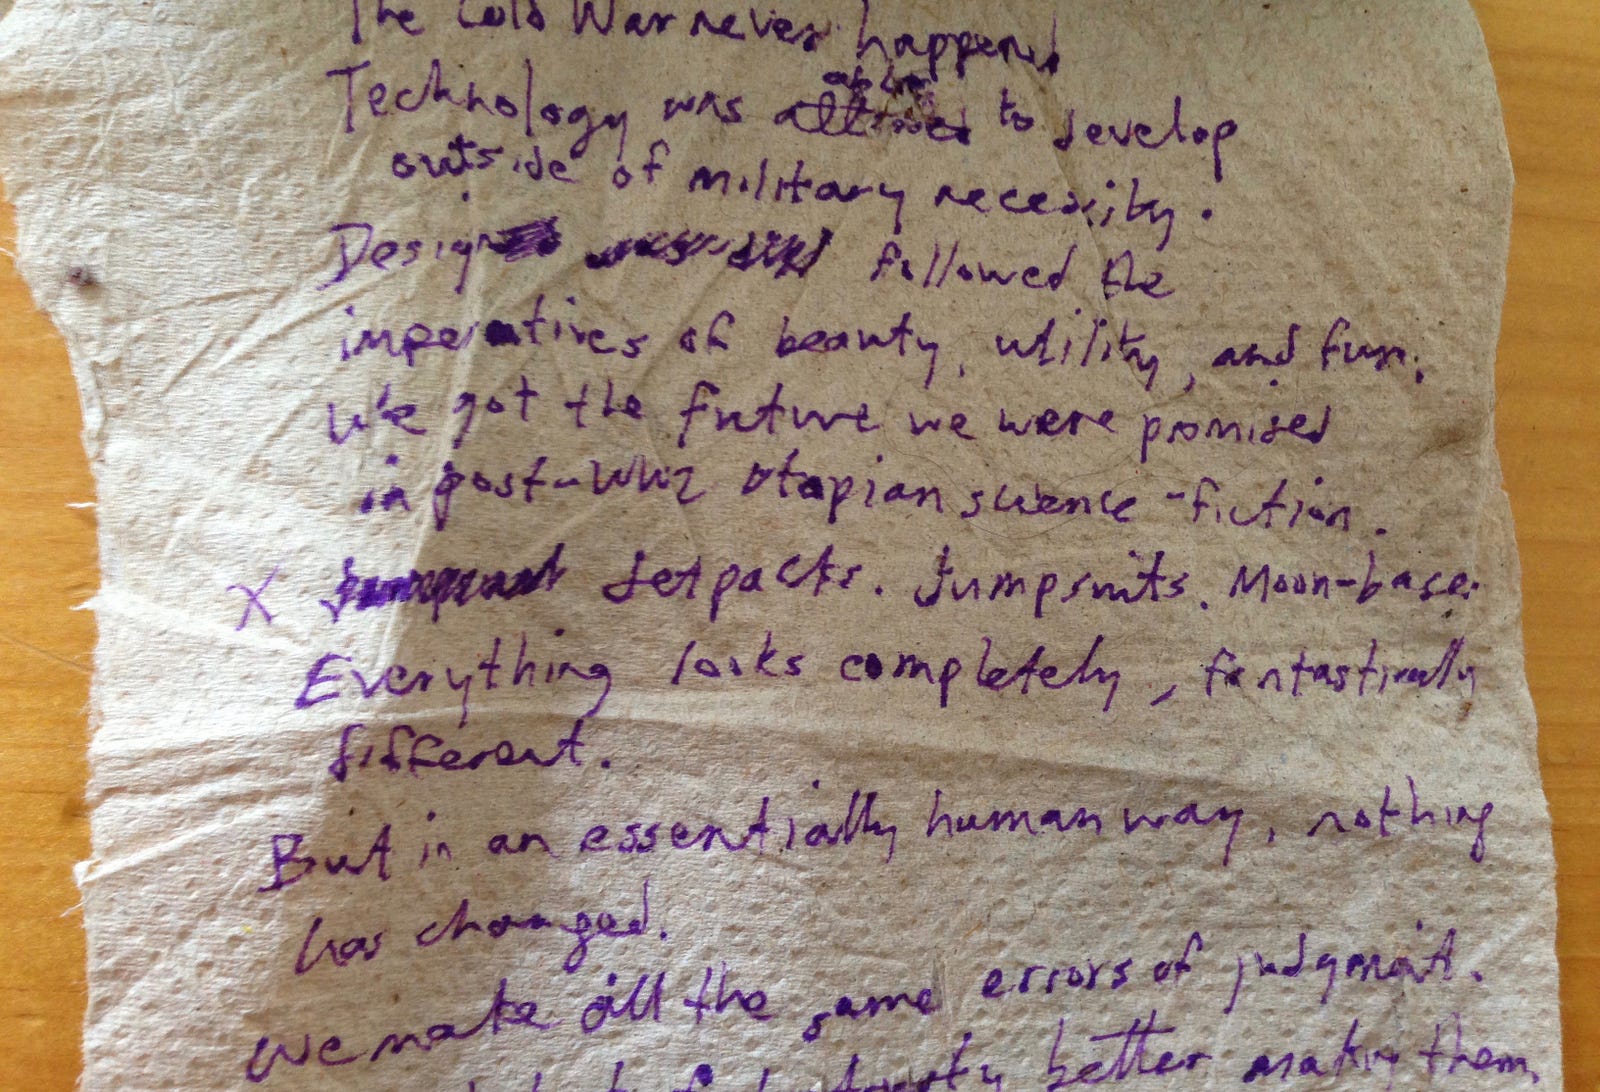 The Cold War never happened
able
Technology was to develop
outside of military necessity.
Design followed the
imperatives of beauty, utility, and fun.
We got the future we were promised
in post-WW2 utopian science-fiction.
X Jetpacks. Jumpsuits. Moon-base.
Everything looks completely, fantastically
different.
But in an essentially human way, nothing
has changed.
We make all the same errors of judgment.
better making them